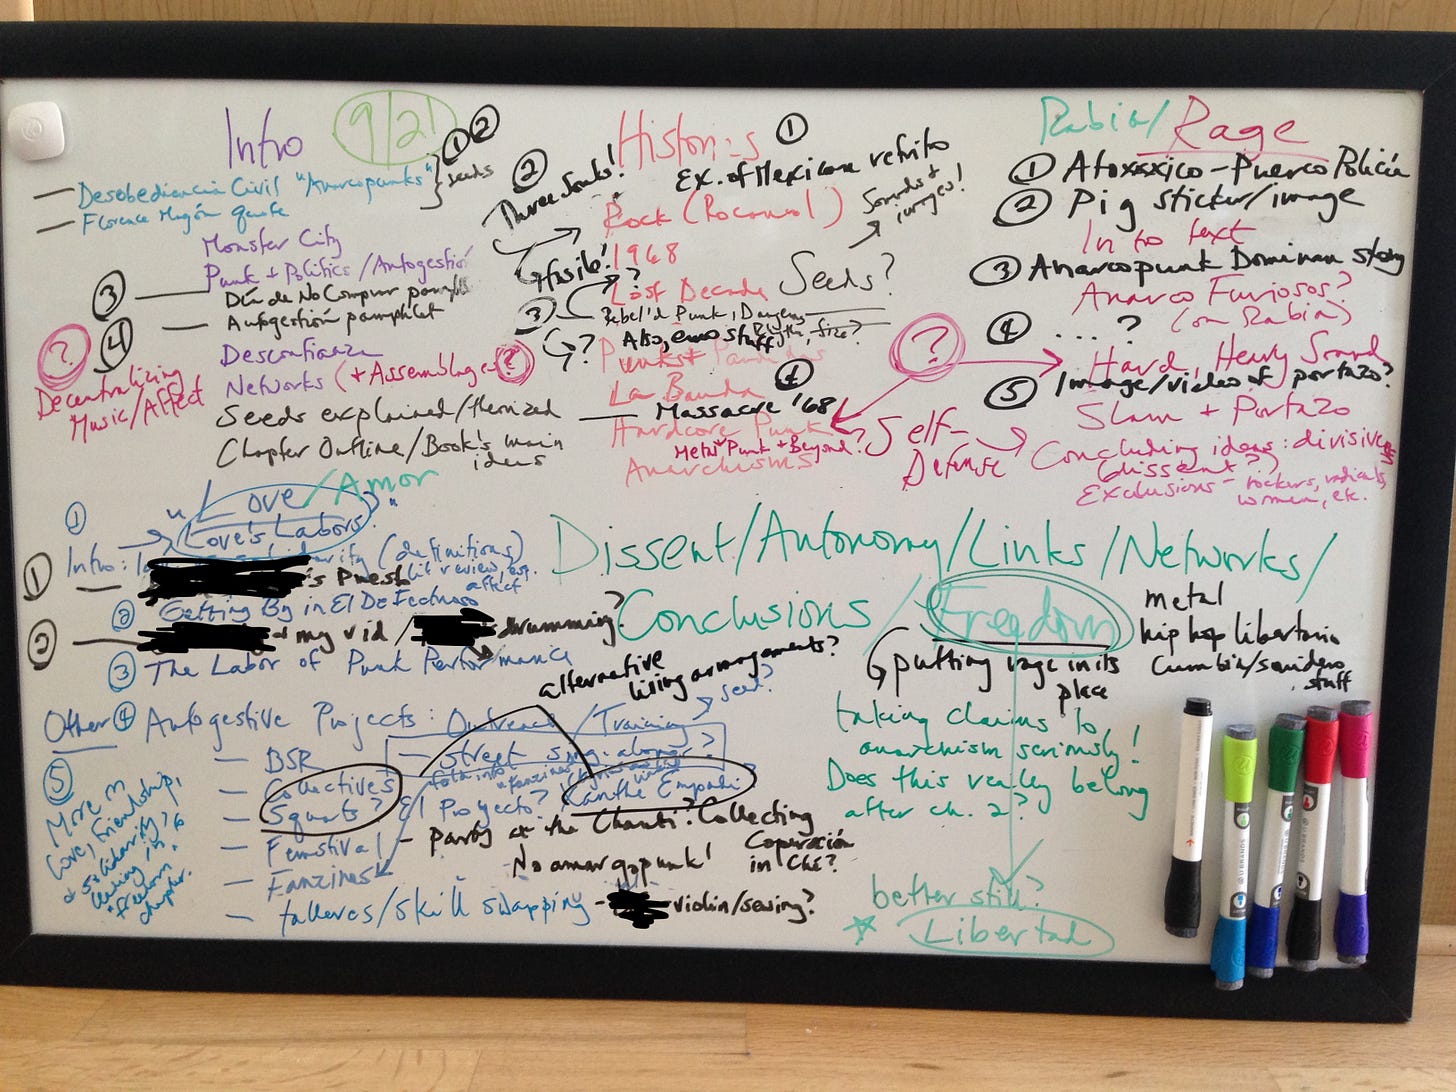 Intro 9/21
— Desobediencia Civil "Anarcopunks" } ① ② seeds
— Florence Magón quote
Monster City
Punk + Politics / Autogestión
③ — Día de No Comprar
④ — Autogestión pamphlet
Desconfianza
Networks (+ Assemblages ?)
? Decentralizing Music/Affect
Seeds explained/themized
Chapter Outline/Book's main ideas
Histories ①
② Three Souls!
Ex. of Mexican refrito
Rock (Rocanrol)
Sounds + images!
1968
Fusile!
?
Lost Decade
Seeds?
③ Rebel'd Punk,
?
Also, emo stuff
Punks + Pandidas
④
La Banda
— Massacre '68
Hardcore Punk
Metal Punk + Beyond?
Anarchisms
Rabia/Rage
① Atoxxxico - Puerco Policía
② Pig sticker/image
Intro text
③ Anarcopunk Dominan story
Anarco Furiosos?
(on Rabia)
④ ... ?
?
Hard, Heavy Sound
⑤ Image/video of portazo?
Slam + Portazo
Self-Defense
Concluding ideas: divisiveness
(dissent?)
Exclusions - rockers, radicals, women, etc.
Love/Amor
① "Love's Labors"
Intro: (definitions)
lit review, esp. affect
① 's Puesto
② Getting By in El De Fectuoso
② — + my vid / drumming?
③ The Labor of Punk Performance
alternative living arrangements?
sex?
Other ④ Autogestive Projects: Outreach/Training
— BSR
— street sing-alongs?
— Collectives
Squats?
El Proyecto?
— Femstival
— party at the Chanti? Collecting
No amargopunk!
Coperación in Che?
— Fanzines
— talleres/skill swapping - violin/sewing?
⑤ More on love, friendship, + solidarity? "freedom" chapter.
Dissent/Autonomy/Links/Networks/
Conclusions/Freedom
metal
hip hop libertario
Cumbia/sonidero stuff
putting rage in its place
taking claims to anarchism seriously!
Does this really belong after ch. 2?
better still?
☆ Libertad